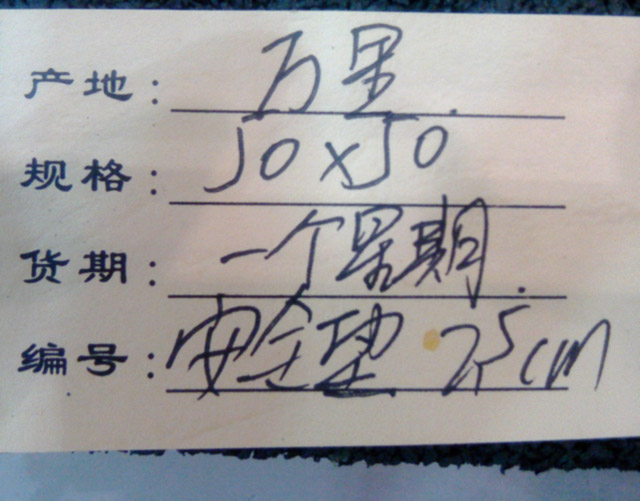 产地：万里.
规格：50×50
货期：一个星期.
编号：安全垫 2.5cm